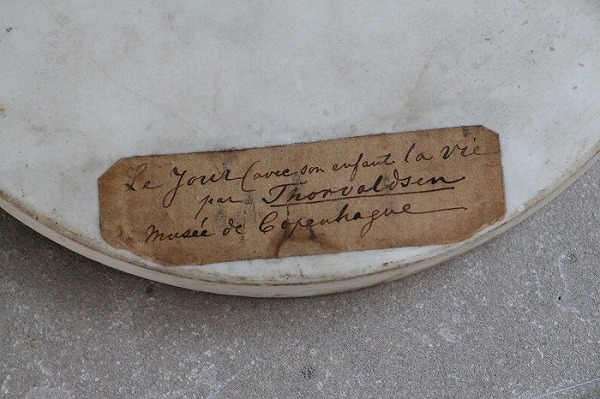 Le Jour (avec son enfant la vie
par Thorvaldsen
Musée de Copenhague